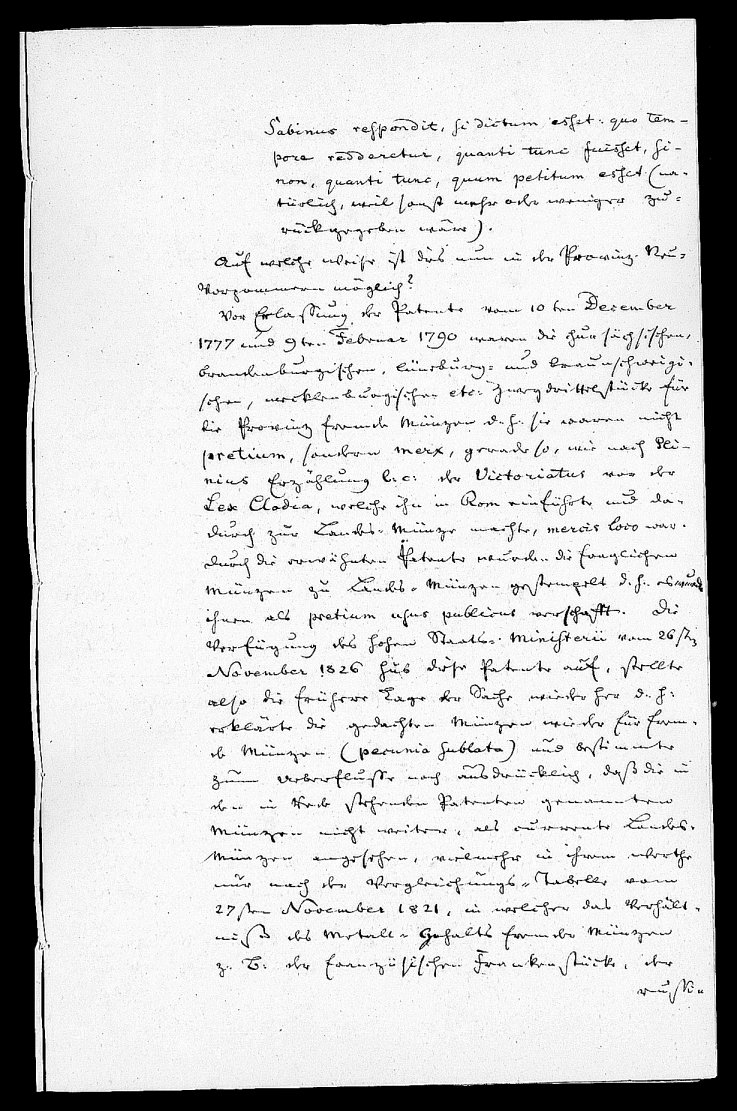 Sabinus respondit, si dictum esset: quo tem-
pore redderetur, quanti tunc fuisset, si-
non, quanti tunc, quum petitum esset (na-
türlich, weil sonst mehr oder weniger zu-
rückgegeben wäre).
Auf welche Weise ist dies nun in der Provinz Neu-
Vorpommern möglich?
Vor Erlassung der Patente vom 10ten December
1777 und 9ten Februar 1790 waren die chursächsischen,
brandenburgischen, lüneburg- und braunschweigi-
schen, mecklenburgischen etc. Zweydrittelstücke für
die Provinz fremde Münzen d. h. sie waren nicht
pretium, sondern merx, gerade so, wie nach Pli-
nius Erzählung l. c. der Victoriatus vor der
Lex Clodia, welche ihn in Rom einführte und da-
durch zur Landes-Münze machte, mercis loco war.
Durch die erwähnten Patente wurden die fraglichen
Münzen zu Landes-Münzen gestempelt d. h. es wurde
ihnen als pretium usus publicus verschafft. Die
Verfügung des hohen Staats-Ministerii vom 26sten
November 1826 hub diese Patente auf, stellte
also die frühere Lage der Sache wieder her d. h.
erklärte die gedachten Münzen wieder für frem-
de Münzen (pecunia sublata) und bestimmte
zum Ueberflusse noch ausdrücklich, daß die in
den in Rede stehenden Patenten genannten
Münzen nicht weiter, als currente Landes-
Münzen angesehen, vielmehr in ihrem Werthe
nur nach der Vergleichungs-Tabelle vom
27sten November 1821, in welcher das Verhält-
niß des Metall-Gehalts fremder Münzen
z. B. der französischen Frankenstücke, der
russi-